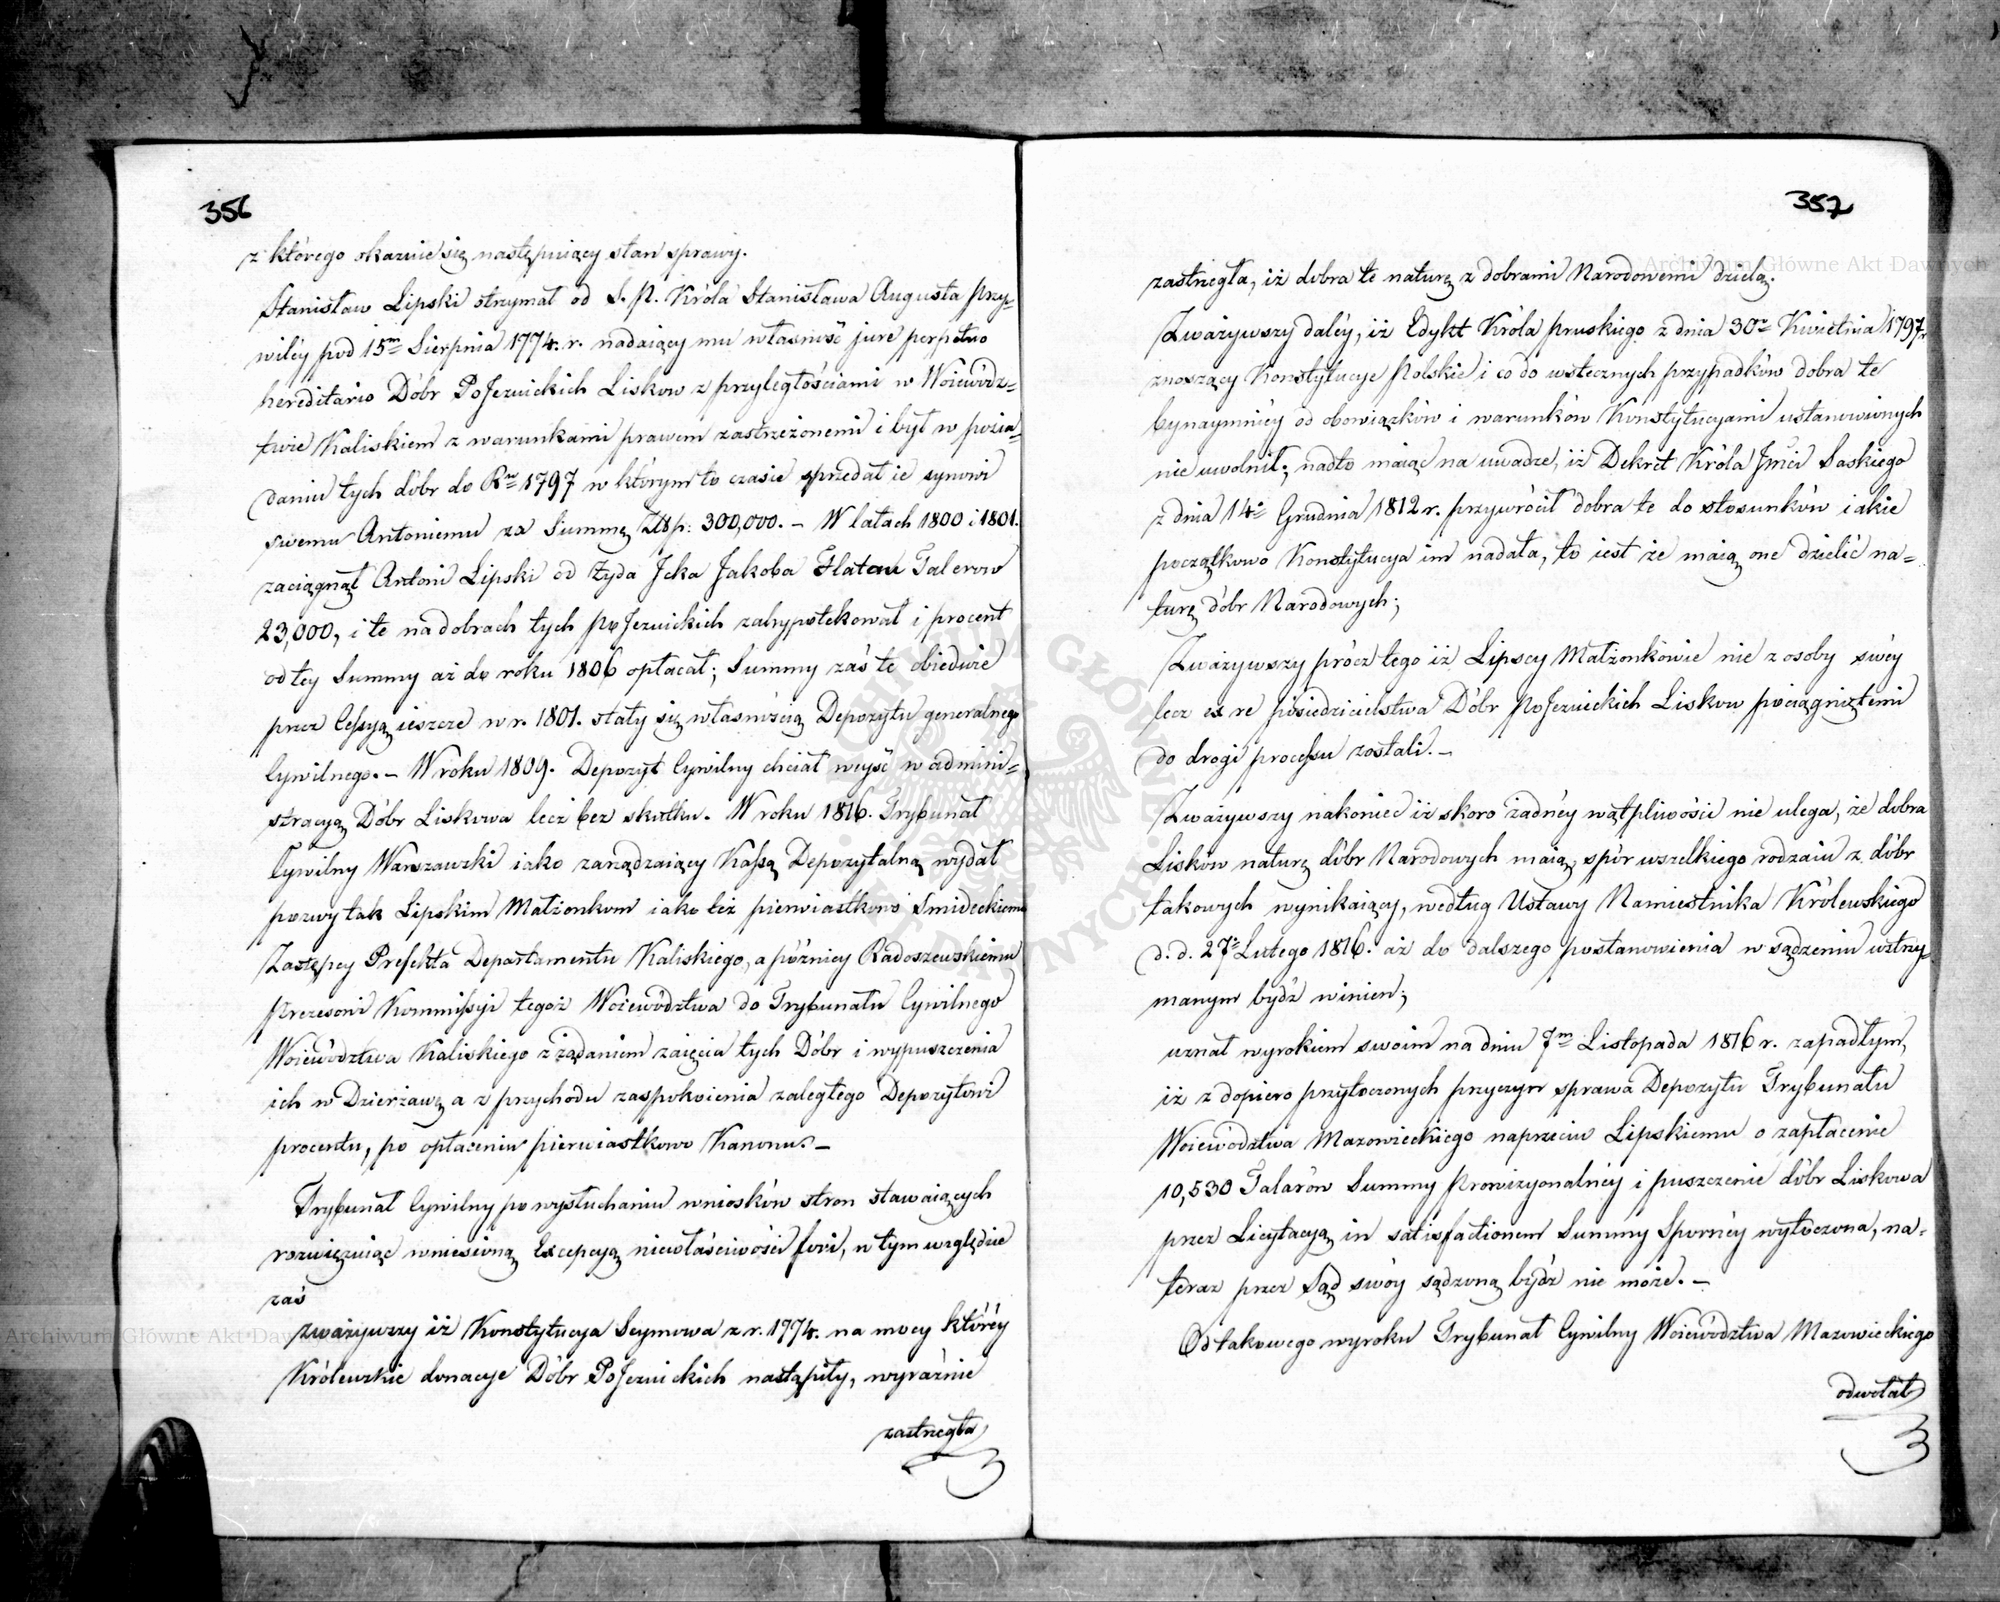 356
z którego okazuie się następuiący stan sprawy.
Stanisław Lipski otrzymał od S. P. Króla Stanisława Augusta Przy-
wiléy pod 15m Sierpnia 1774. r. nadaiący mu własność jure perpetuo
hereditario Dóbr PoJezuickich Liskow z przyległościami w Woiewódz-
twie Kaliskiem z warunkami prawem zastrzeżonemi i był w posia-
daniu tych dóbr do Rn 1797 w którym to czasie sprzedał ie synowi
swemu Antoniemu za Summę Złłp: 300,000. – W latach 1800 i 1801.
zaciągnął Antoni Lipski od Żyda Icka Jakoba Flatau Talerow
23,000, i te na dobrach tych PoJezuickich zahypotekował i procent
od tey Summy aż do roku 1806 opłacał; Summy zaś te obiedwie
przez Cessyą ieszcze w r. 1801. stały się własnością Depozytu generalnego
Cywilnego. – W roku 1809. Depozyt Cywilny chciał weyść w admini-
stracyą Dóbr Liskowa lecz bez skutku. W roku 1816. Trybunał
Cywilny Warszawski iako zarządzaiący Kassą Depozytalną wydał
pozwy tak Lipskim Małżonkom iako też pierwiastkowo Smideckiemu
Zastępcy Prefekta Departamentu Kaliskiego, a późniey Radoszewskiemu
Prezesowi Kommissyi tegoż Woiewództwa do Trybunału Cywilnego
Woiewództwa Kaliskiego z żądaniem zaięcia tych Dóbr i wypuszczenia
ich w Dzierżawę a z przychodu zaspokoienia zaległego Depozytowi
procentu, po opłaceniu pierwiastkowo Kanonu. –
Trybunał Cywilny po wysłuchaniu wniosków stron stawaiących
rozwiązuiąc wniesioną Excepcyą niewłaściwości fori, w tym względzie
zaś
zważywszy iż Konstytucya Seymowa z r. 1774. na mocy któréy
Królewskie donacye Dóbr PoJezuickich nastąpiły, wyraźnie
zastrzegła
357
zastrzegła, iż dobra te naturę z dobrami Narodowemi dzielą.
Zważywszy daléy, iż Edykt Króla Pruskiego z dnia 30o Kwietnia 1797 r.
znoszący Konstytucye Polskie i co do wstecznych przypadków dobra te
bynaymniéy od obowiązków i warunków Konstytucyami ustanowionych
nie uwolnił; nadto maiąc na uwadze, iż Dekret Króla Jmci Saskiego
z dnia 14o Grudnia 1812 r. przywrócił dobra te do stosunków iakie
początkowo Konstytucya im nadała, to iest że maią one dzielić na-
turę dóbr Narodowych;
Zważywszy prócz tego iż Lipscy Małżonkowie nie z osoby swéy
lecz ex re posiedzicielstwa Dóbr PoJezuickich Liskow pociągniętemi
do drogi processu zostali. –
Zważywszy nakoniec iż skoro żadnéy wątpliwości nie ulega, że dobra
Lisków naturę dóbr Narodowych maią, spór wszelkiego rodzaiu z dóbr
takowych wynikaiący, według Ustawy Namiestnika Królewskiego
d. d. 27o Lutego 1816. aż do dalszego postanowienia w sądzeniu wstrzy-
manym bydź winien;
uznał wyrokiem swoim na dniu 7m Listopada 1816 r. zapadłym,
iż z dopiero przytoczonych przyczyn sprawa Depozytu Trybunału
Woiewództwa Mazowieckiego naprzeciw Lipskiemu o zapłacenie
10,530 Talarów Summy Prowizyonalnéy i puszczenie dóbr Liskowa
przez Licytacyą in satisfactionem Summy Spornéy wytoczona, na-
teraz przez Sąd swóy sądzoną bydź nie może. –
Od takowego wyroku Trybunał Cywilny Woiewództwa Mazowieckiego
odwołał